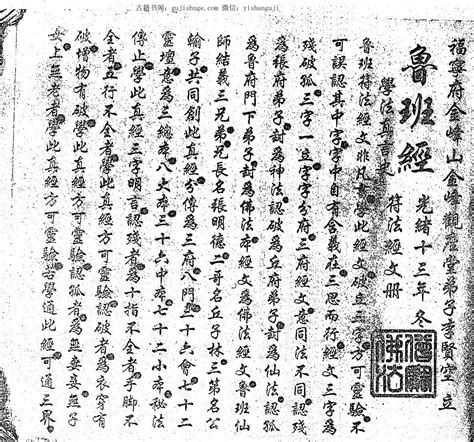 古籍书阁：gujishuge.com 微信：yishanguji
福寧府金峰山金峰觀堂弟子李賢空立
魯班經 光緒十三年冬
學法真言史 符法經文册
魯班符法經文非凡意學此經文破立三字方可靈驗不
可誤認其中字字中自有含義在三思而行經文三字認
殘破孤三字一立字字分府三經文意同法不同認殘
為張府弟子封為神法認破為丘府弟子封為仙法認孤
為魯府門下弟子封為佛法本經文為佛法經文魯班仙
師結義三兄弟兄長名張明德二哥名丘子林三弟名公
輸子共同創此真經分傳為三府八門三十六會七十二
靈壇意為三總本八大本三十六中本七十二小本秘法
傳止學此真經三字明言認殘者為十指不全者手脚不
全者五行不全者學此真經方可靈驗認破者為衣穿有
破惜物有破學此真經方可靈驗認孤者為無妻無子
女上無老者學此真經方可靈驗若學通此經可通三界